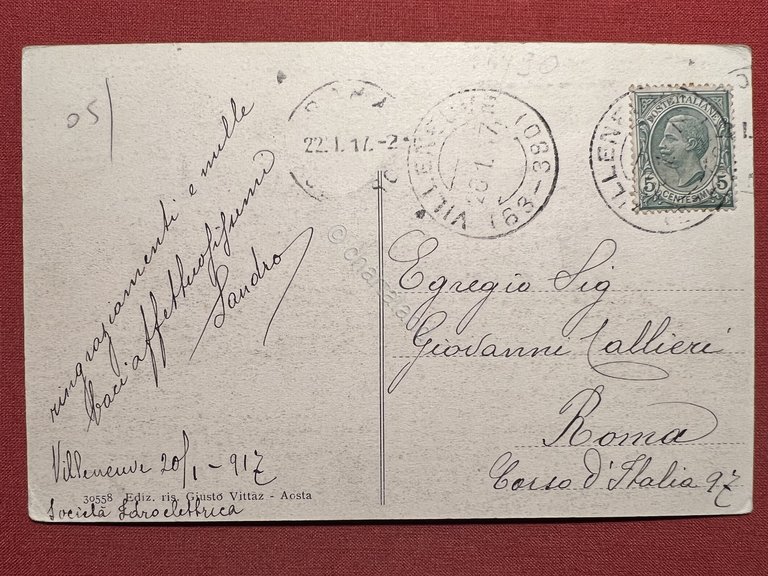 05/
ringraziamenti e mille
baci affettuosissimi
Sandro
Villeneuve 20/1 - 917
30558 Ediz. ris. Giusto Vittaz - Aosta
Società Idroelettrica
ROMA
22.1.17.-2
VILLENEUVE (63-380)
20.1.17
POSTE ITALIANE
5 5
CENTESIMI
Egregio Sig
Giovanni Callieri
Roma
Corso d'Italia 97